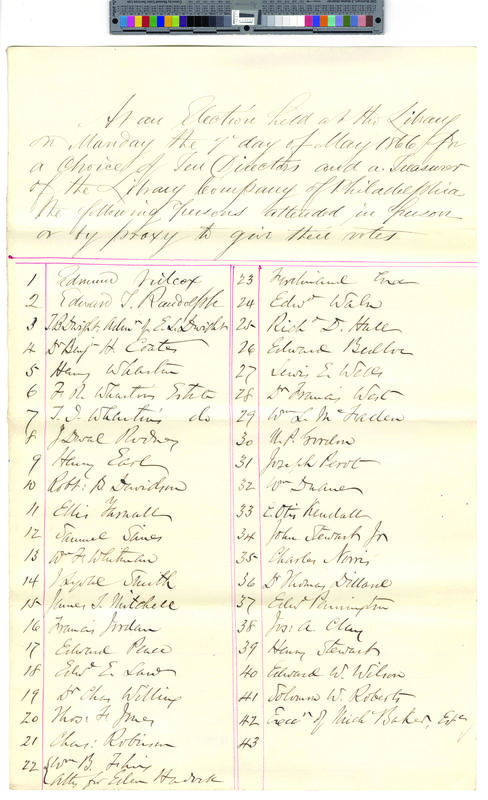 At an Election held at the Library
on Monday the 7th day of May 1866 for
a Choice of Ten Directors and a Treasurer
of the Library Company of Philadelphia
the following Persons attended in Person
or by proxy to give their votes
1 Edmund Wilcox
2 Edward T. Randolph
3 T. B. Dwight Admr of E. S. Dwight
4 Dr Benjn H. Coates
5 Henry Wharton
6 F. R. Wharton's Estate
7 T. I. Wharton's do
8 J. Duval Rodney
9 Henry Earl
10 Robt: B Davidson
11 Ellis Yarnall
12 Samuel
13 Wm F. Whitman
14 J Lysle Smith
15 James T. Mitchell
16 Francis Jordan
17 Edward Peace
18 Edwd E. Law
19 Dr Chas Willing
20 Thos: F. Jones
21 Chas: Robinson
22 Wm B.
Atty for
23 Ferdinand
24 Edwd Waln
25 Richd D. Hall
26 Edward
27 Lewis E. Wells
28 Dr Francis West
29 Wm L. McFadden
30 Gordon
31 Joseph Perot
32 Wm Duane
33 E. Otis Kendall
34 John Stewart Jr
35 Charles Norris
36 Dr Thomas
37 Edwd Pennington
38 Jos: A Clay
39 Henry Stewart
40 Edward W. Wilson
41 Solomon W. Roberts
42 of Michl Baker,
43